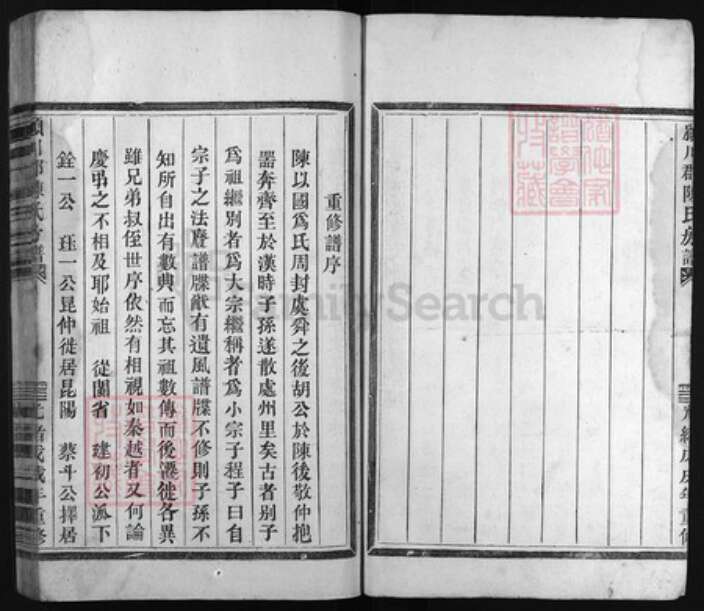 潁川郡陳氏房譜
光緒戊戌年重修
重修譜序
陳以國爲氏周封虞舜之後胡公於陳後敬仲抱
器奔齊至於漢時子孫遂散處州里矣古者別子
爲祖繼別者爲大宗繼稱者爲小宗子程子曰自
宗子之法廢譜牒猷有遺風譜牒不修則子孫不
知所自出有數典而忘其祖數傳而後遷徙各異
雖兄弟叔侄世序依然有相視如秦越者又何論
慶弔之不相及耶始祖 從閩省 建初公派下
銓一公 珏一公昆仲徙居昆陽 蔡斗公擇居
潁川郡陳氏房譜
光緒戊戌年重修
FamilySearch